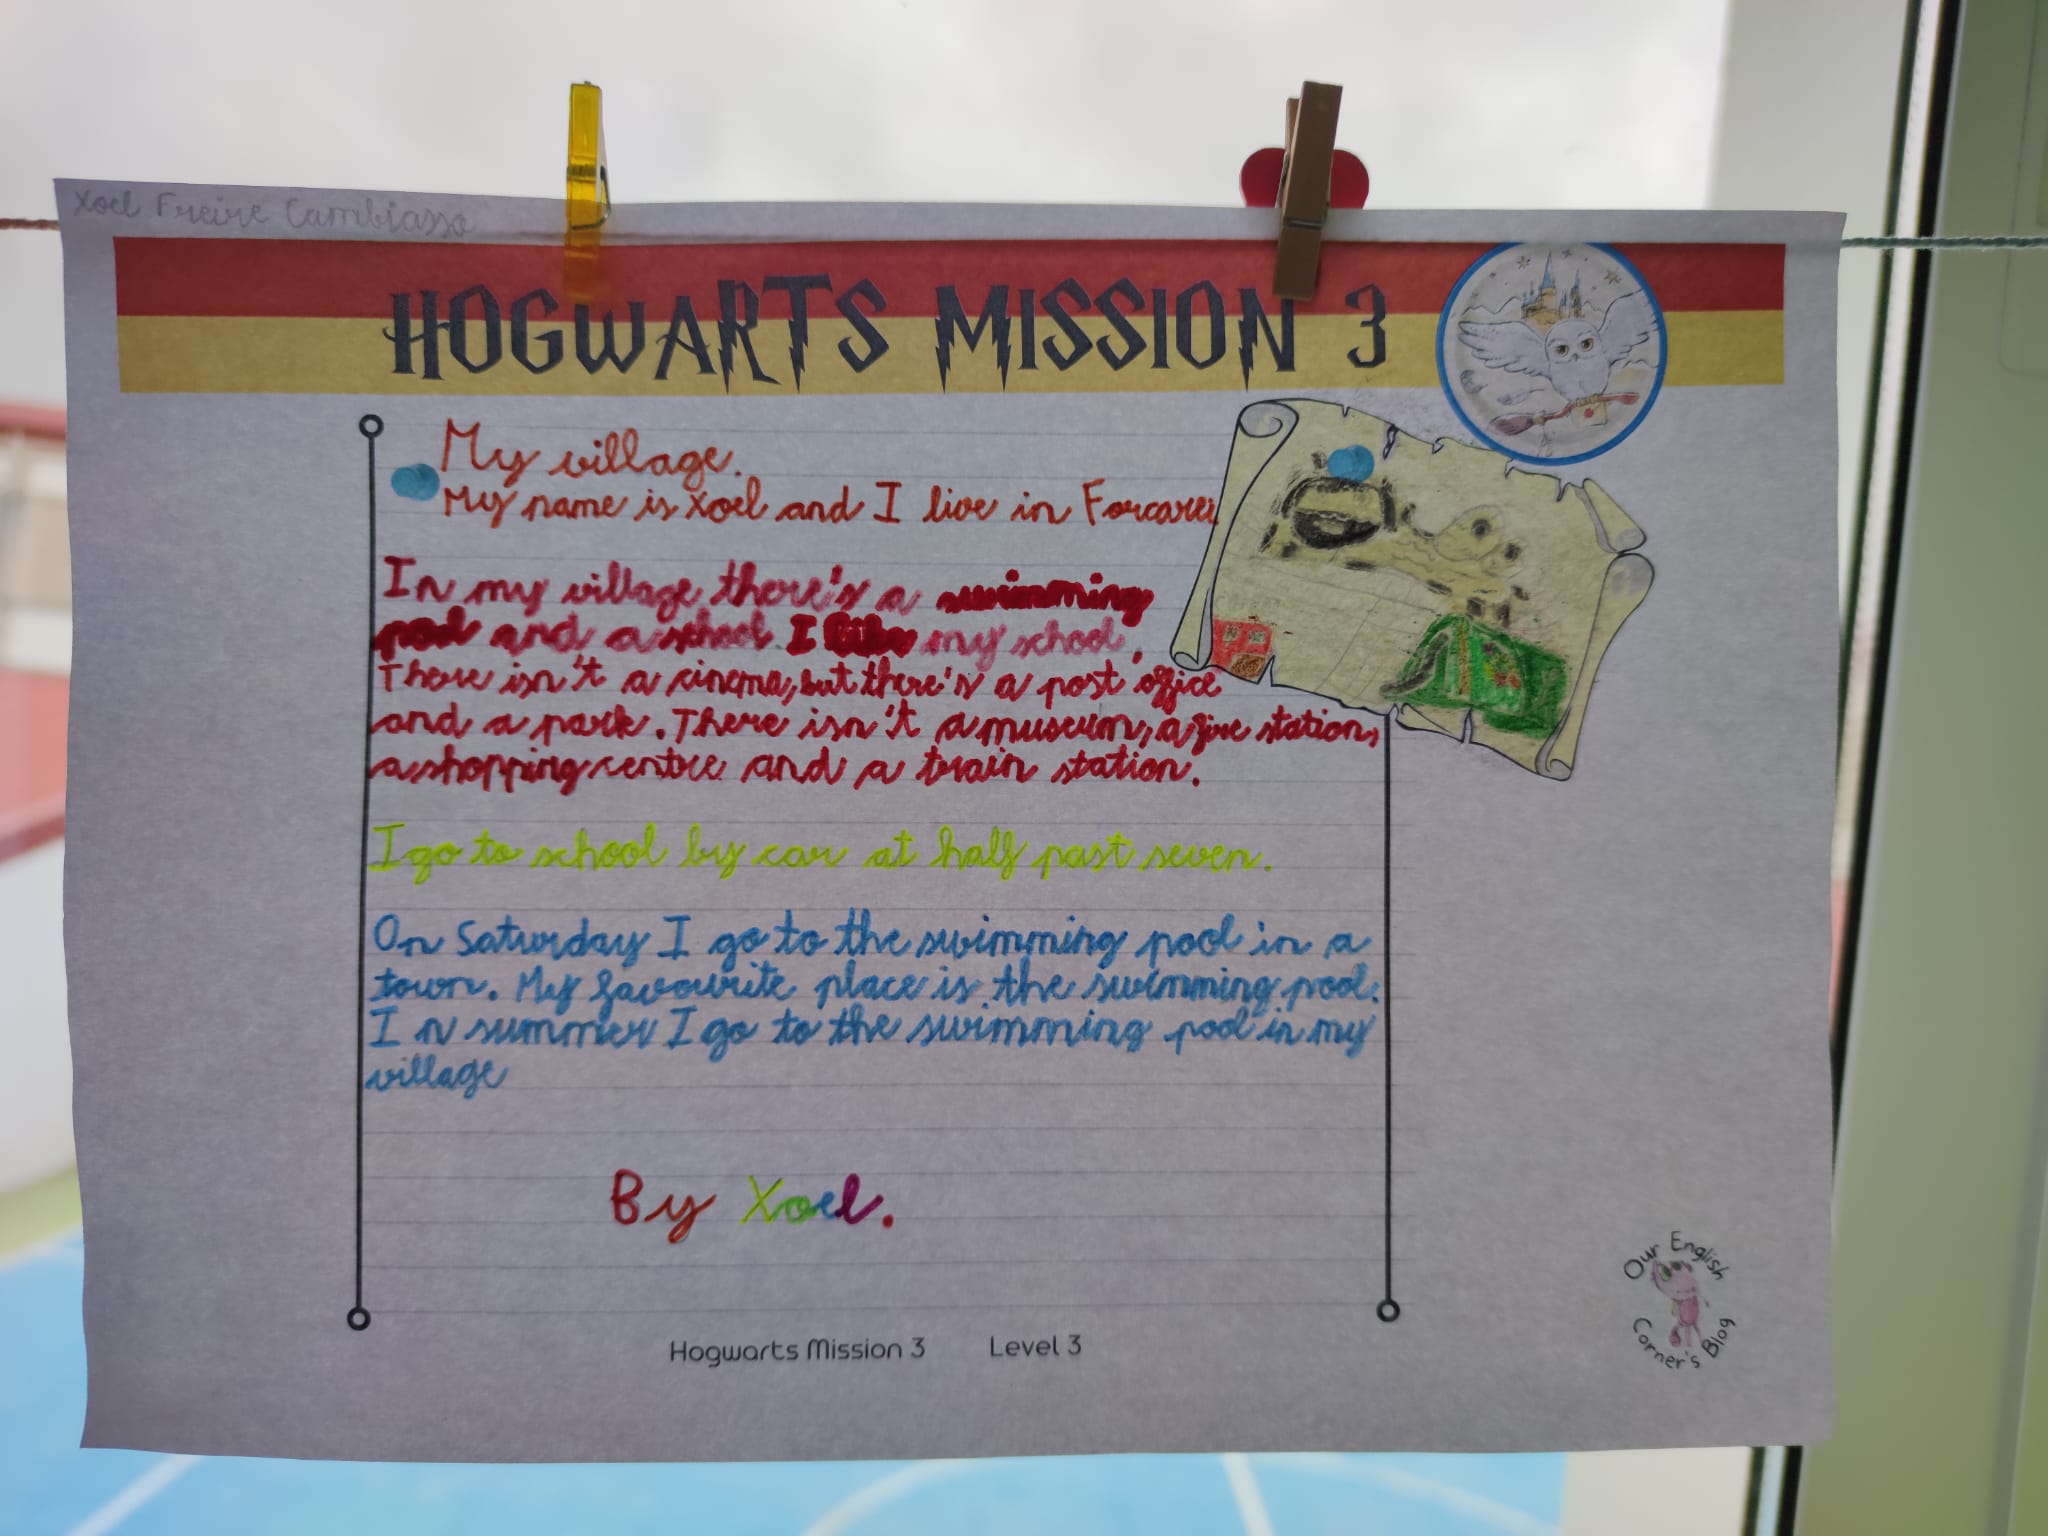 Xoel Freire Cambiasso
HOGWARTS MISSION 3
My village.
My name is Xoel and I live in Forcarei
In my village there's a swimming
pool and a school I like my school.
There isn't a cinema, but there's a post office
and a park. There isn't a museum, a fire station,
a shopping centre and a train station.
I go to school by car at half past seven.
On Saturday I go to the swimming pool in a
town. My favourite place is the swimming pool.
In summer I go to the swimming pool in my
village
By Xoel.
Hogwarts Mission 3 Level 3
Our English
Corner's Blog